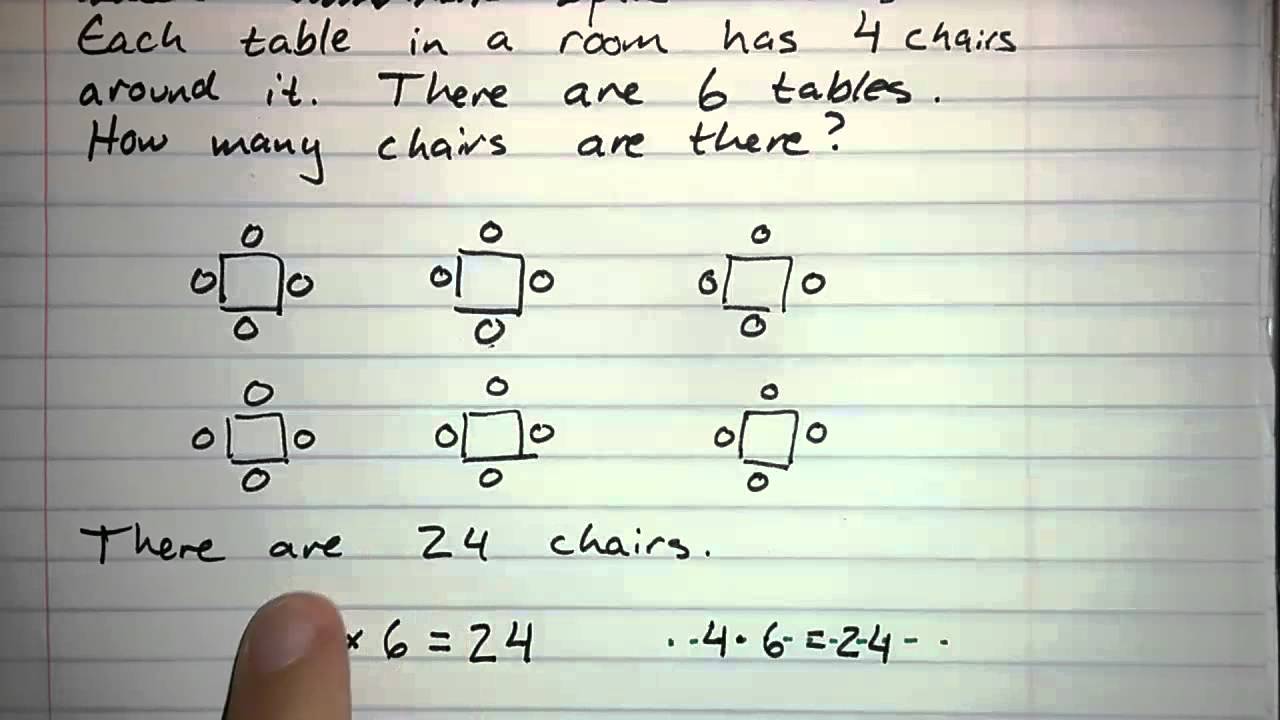 Each table in a room has 4 chairs
around it. There are 6 tables.
How many chairs are there?
There are 24 chairs.
× 6 = 24 4 · 6 = 24